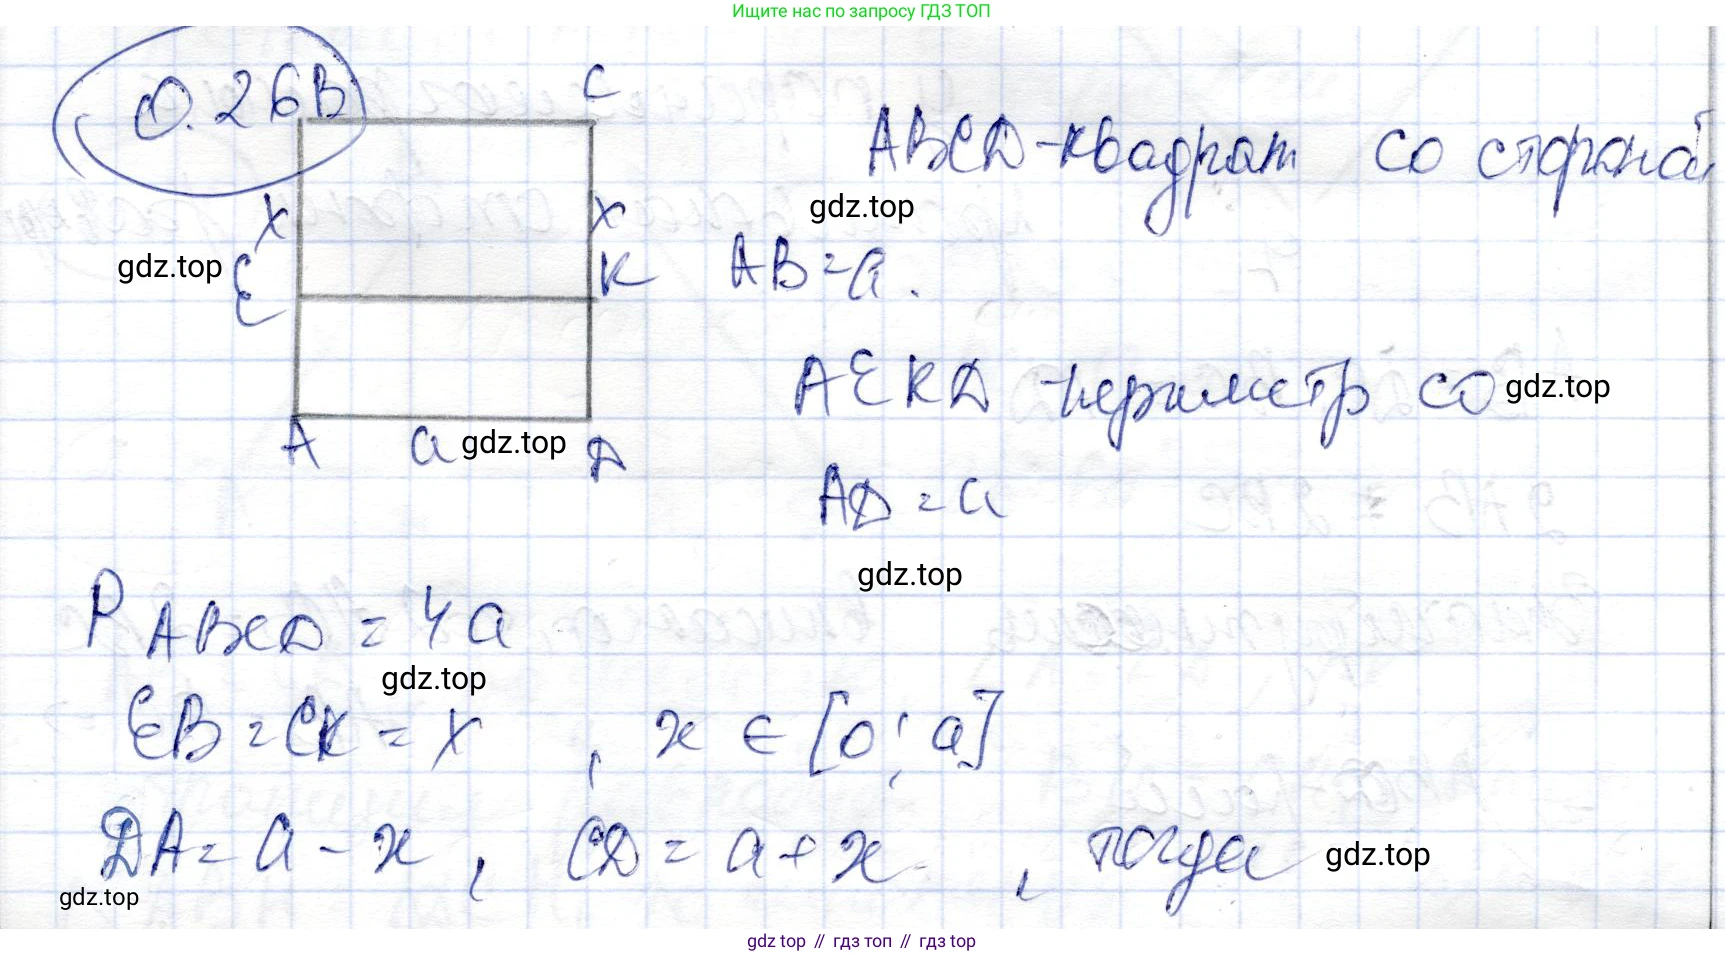 Ищите нас по запросу ГДЗ ТОП
0.26 B
C
ABCD-квадрат со стороной
X
X
gdz.top
gdz.top
E
K
AB=a.
AEKD -периметр со
gdz.top
A
a
gdz.top
D
AD=a
gdz.top
P ABCD = 4a
gdz.top
EB=CK=X , x ∈ [0; a]
DA=a-x, CD=a+x , тогда
gdz.top
gdz.top
gdz top // гдз топ // гдз top